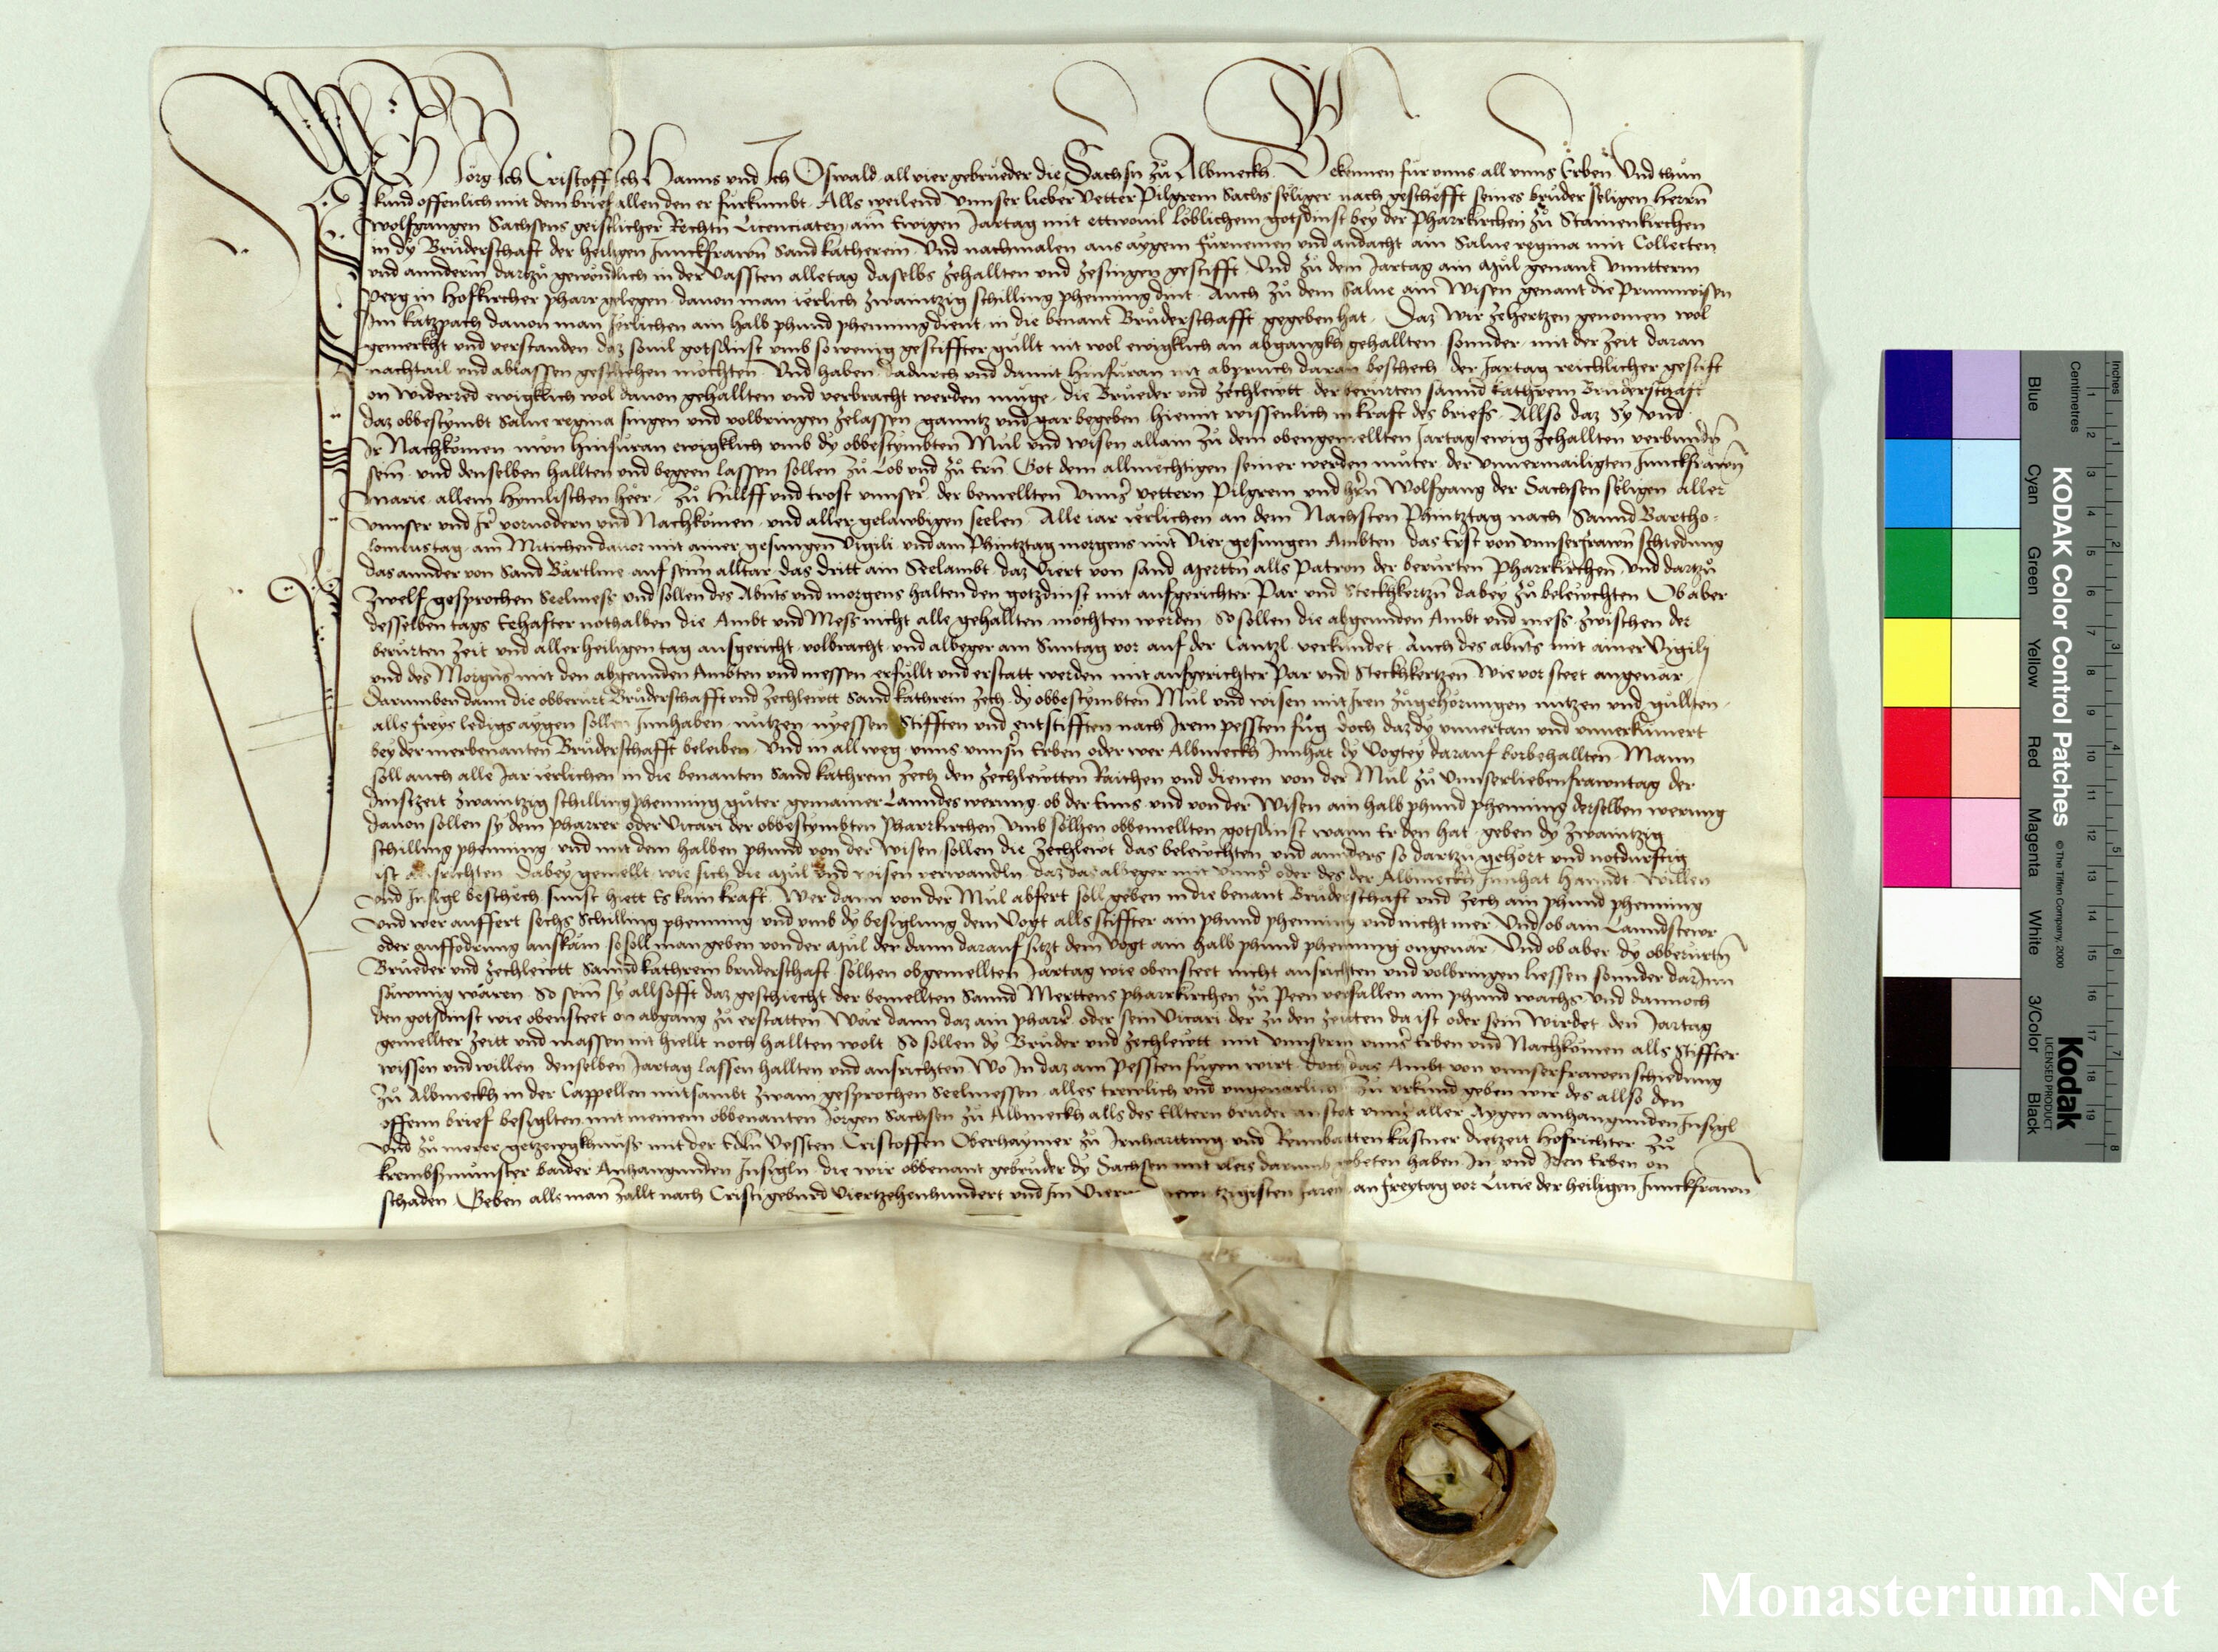 Ich Jorg Ich Cristoff Ich Hanns vnd Ich Oswald all vier gebrueder die Sachsn zu Albmeckh Bekennen fur vnns all vnns Erben Vnd thun
kund offenlich mit dem brief allen den er furkumbt Alls weilend Vnnser lieber Vetter Pilgrem Sachs seliger nach geschefft seines bruder seligen Herrn
Wolfgangen Sachsens geistlicher Rechtn Licenciaten ain Ewigen Jartag mit ettwouil loblichem gotsdinst bey der Pharrkirchen zu Stainenkirchen
in dy Bruderschaft der heiligen Junckfrawn Sand Katherein Vnd nachmalen aus aygem furnemen vnd andacht ain Salue regina mit Collecten
vnd annderm dartzu gewondlich in der Vassten alletag daselbs zehallten vnd zesingen gestifft Vnd zu dem Jartag ain Mul genant Vnntterm
Perg in Hofkircher pharr gelegen dauon man ierlich zwaintzig schilling phenning dint Auch zu dem Salue ain Wisen genant die Prunnwisen
Im Katzpach dauon man Jerlichen ain halb phund phenning dient in die benant Bruderschafft gegeben hat Daz wir zehertzen genomen wol
gemerkht vnd verstanden daz souil gotsdinst vmb sowenig gestiffter gullt nit wol ewigklich an abgangkh gehallten sonnder mit der zeit daran
nachtail vnd ablassen geschehen mochten Vnd haben dadurch vnd damit hinfuran nit abpruch daran beschech der Jartag reichlicher gestift
on widerred ewigklich wol dauon gehallten vnd verbracht werden muge die Brueder vnd zechlewtt der berurten sannd Kathrein Bruderschaft
daz obbestymbt Salue regina singen vnd volbringen zelassen ganntz vnd gar begeben hiemit wissenlich in kraft des briefs Allso daz Sy vnd
Ir Nachkomen nun hinfuran ewigklich vmb dy obbestymbten Mul vnd wisen allain zu dem obengemellten Jartag ewig zehallten verbundn
sein vnd denselben hallten vnd begeen lassen sollen zu Lob vnd zu Ern Got dem allmechtigen seiner werden muter der vnuermailigten Junckfrawn
Marie allem hymlischen heer zu hillff vnd trost vnnser der bemellten Vnns vettern Pilgrem vnd hern Wolfgang der Sachsen seligen aller
vnnser vnd Ir voruodern vnd Nachkomen vnd aller gelawbigen seelen Alle iar ierlichen an dem Nachsten Phintztag nach Sannd Bartho-
lomeustag am Mitichen dauor mit ainer gesungen Vigili vnd am Phintztag morgens mit Vier gesungen Ambten das Erst von vnnserfrawn schiedung
das annder von Sand Bartlme auf seim alltar das dritt ain Seelambt daz Viert von sand Mertten alls Patron der berurten Pharrkirchen vnd dartzu
zwelf gesprochen Seelmess vnd sollen des Abnts vnd morgens halten den gotzdinst mit aufgerichter Par vnd Steckhkertzn dabey zu belewchten Ob aber
desselben tags Eehafter nothalben die Ambt vnd Mess nicht alle gehallten mochten werden So sollen die abgeunden Ambt vnd mess zwischen der
berurten zeit vnd aller heiligen tag ausgericht volbracht vnd albeger am Suntag vor auf der Cantzl verkundet Auch des abnts mit ainer Vigilj
vnd des Morgns mit den abgeunden Ambten vnd messen erfullt vnd erstatt werden mit aufgerichter Par vnd Steckhkertzen Wie vor steet angeuar
Darumben dann die obberurt Bruderschafft vnd zechlewtt Sand Kathrein zech dy obbestymbten Mul vnd wisen mit Iren zugehorungen nutzen vnd gullten
alls freys ledigs aygen sollen Innhaben nutzen nyessen Stifften vnd entstifften nach Irem pessten fug doch daz dy vnuertan vnd vnuerkumert
bey der merbenanten Bruderschafft beleiben Vnd in all weg vnns vnnsn Erben oder wer Albmeckh Innhat dy Vogtey darauf vorbehallten Mann
soll auch alle Jar ierlichen in die benanten Sand Kathrein zech den zechlewtten Raichen vnd dienen von der Mul zu Vnnserliebenfrawntag der
dinstzeit zwaintzig schilling phenning guter gemainer Lanndeswerung ob der Enns vnd von der Wisen ain halb phund phenning derselben werung
dauon sollen sy dem pharrer oder Vicari der obbestymbten Pharrkirchen Vmb solhen obbemellten gotsdinst wann Er den hat geben dy zwaintzig
schilling phenning vnd mit dem halben phund von der Wisen sollen die zechlewt das belewchten vnd annders so dartzu gehort vnd notdurftig
ist ausrichten Dabey gemellt wie sich die Mul vnd wisen verwandln daz daz albeger mit Vnns oder des der Albmeckh Innhat Hanndt willen
vnd Insigl beschech sunst hiett Es kain kraft Wer dann von der Mul abfert soll geben in die benant Bruderschaft vnd zech ain phund phenning
vnd wer auffert sechs Schilling phenning vnd vmb dy besiglung dem Vogt alls stiffter ain phund phenning vnd nicht mer Vnd ob ain Lanndstewr
oder auffodrung auskam so soll man geben von der Mul der dann darauf sitzt dem Vogt ain halb phund phenning ongeuar Vnd ob aber dy obberurtn
Brueder vnd zechlewtt Sannd Kathrein bruderschaft solhen obgemellten Jartag wie obensteet nicht ausrichten vnd volbringen liessen sonnder darJnn
sawmig waren So sein sy allsofft daz geschiecht der bemellten Sannd Merttens pharrkirchen zu Peen veruallen ain phund wachs vnd dannoch
den gotsdinst wie obensteet on abgang zu erstatten War dann daz ain pharr oder sein Vicari der zu den zeiten da ist oder sein wirdet den Jartag
gemellter zeitt vnd massen nit hiellt noch hallten wolt So sollen dy Bruder vnd zechlewtt mit Vnnserm vnns Erben vnd Nachkomen alls Stiffter
wissen vnd willen denselben Jartag lassen hallten vnd ausrichten Wo In daz am Pessten fugen wirt doch das Ambt von vnnserfrawen schiedung
zu Albmeckh in der Cappellen mitsambt zwain gesprochen Seelmessen alles trewlich vnd vngeuarlich Zu vrkund geben wir des allso den
offenn brief besiglten mit meinem obbenanten Jorgen Sachsen zu Albmeckh alls des Elltern bruder anstat vnns aller Aygen anhangunden Insigl
Vnd zu merer getzewgkhnuss mit der Edln Vessten Cristoffen Oberhaymer zu Irnharttung vnd Kastner dietzeit Hofrichter zu
krembsmunster baider Anhangunden Insigln die wir obbenant gebruder dy Sachsen mit vleis darumb gebeten haben In vnd Iren Erben on
schaden Geben alls man zallt nach Cristi geburd Viertzehenhundert vnd Im Jaren an Freytag vor Lucie der heiligen Junckfrawn
KODAK Color Control Patches
© The Tiffen Company, 2000
Kodak
LICENSED PRODUCT
Blue
Cyan
Green
Yellow
Red
Magenta
White
3/Color
Black
Inches
Centimetres
1 2 3 4 5 6 7 8
1 2 3 4 5 6 7 8 9 10 11 12 13 14 15 16 17 18 19
Monasterium.Net